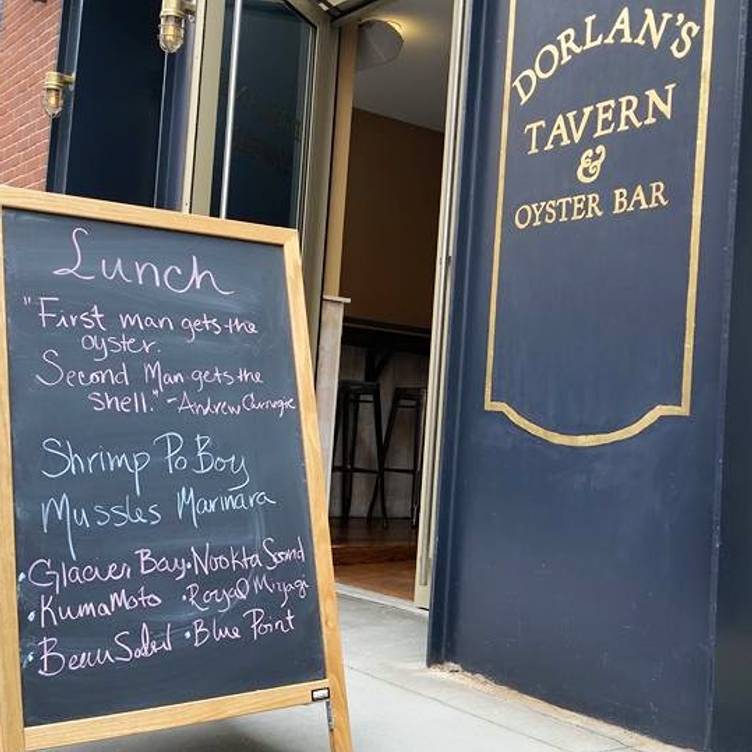 Lunch
"First man gets the
oyster.
Second Man gets the
shell." - Andrew Carnegie
Shrimp Po Boy
Mussles Marinara
• Glacier Bay • Nookta Sound
• KumaMoto • Royal Miyagi
• Beau Soleil • Blue Point
DORLAN'S
TAVERN
&
OYSTER BAR